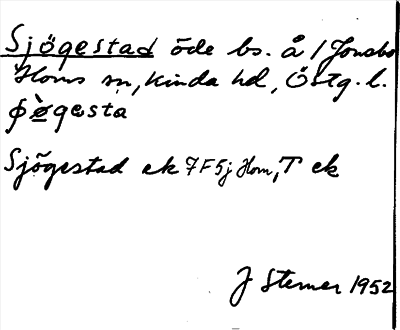 Sjögestad öde bs. å / Jonsbo
Horns sn, Kinda hd, Östg. l.
ʃø̀gesta
Sjögestad ek 7F5j Horn, T ek
J Sterner 1952